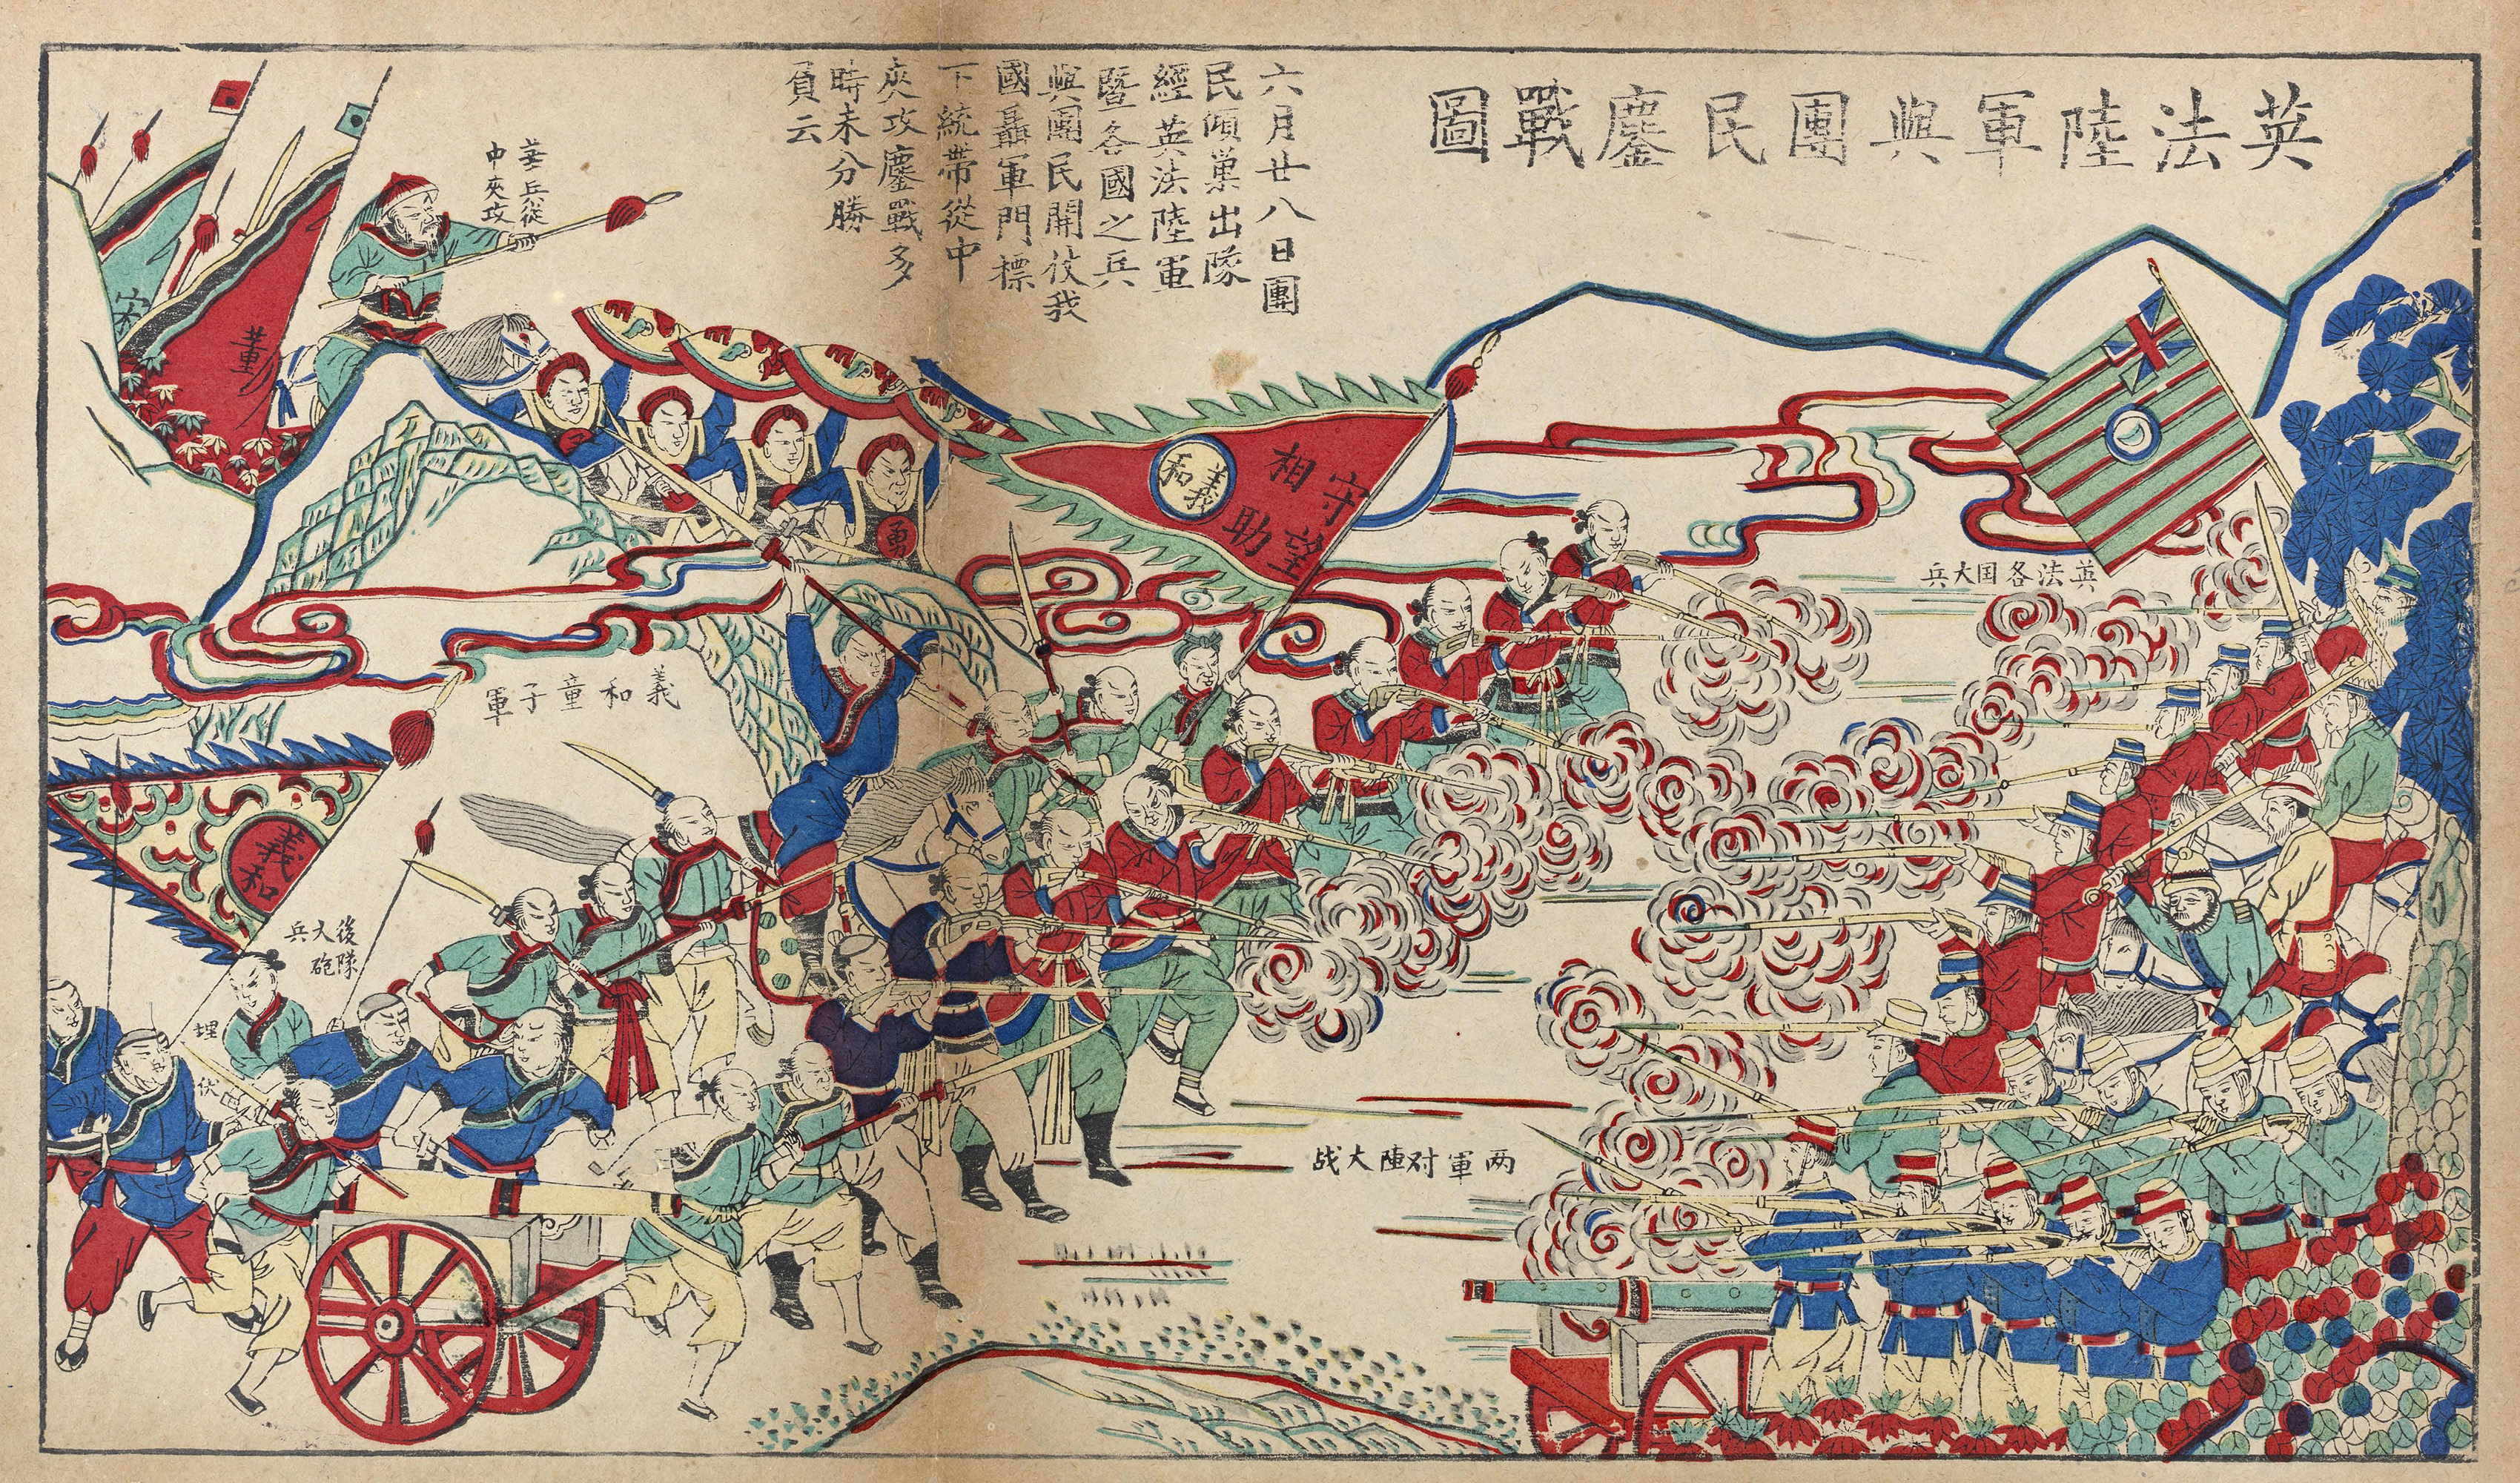 英法陸軍與團民鏖戰圖
六月廿八日團
民傾巢出隊
經英法陸軍
暨各國之兵
與團民開仗我
國聶軍門標
下統帶從中
夾攻鏖戰多
時未分勝
負云
兵從
中夾攻
宋
董
勇
守望
相助
義和
英法各国大兵
義和童子軍
義和
後隊
大砲
兵
埋
伏
两軍对陣大战